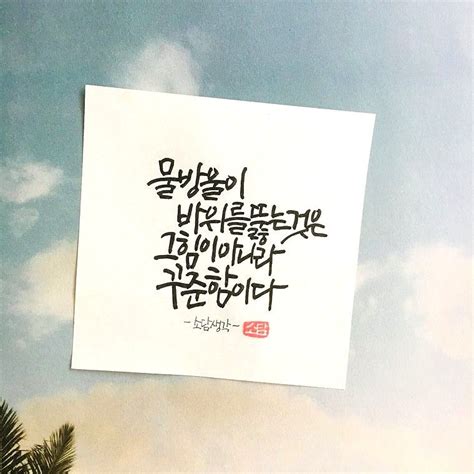 물방울이
바위를 뚫는것은
그 힘이 아니라
꾸준함이다
-소담생각-
소담